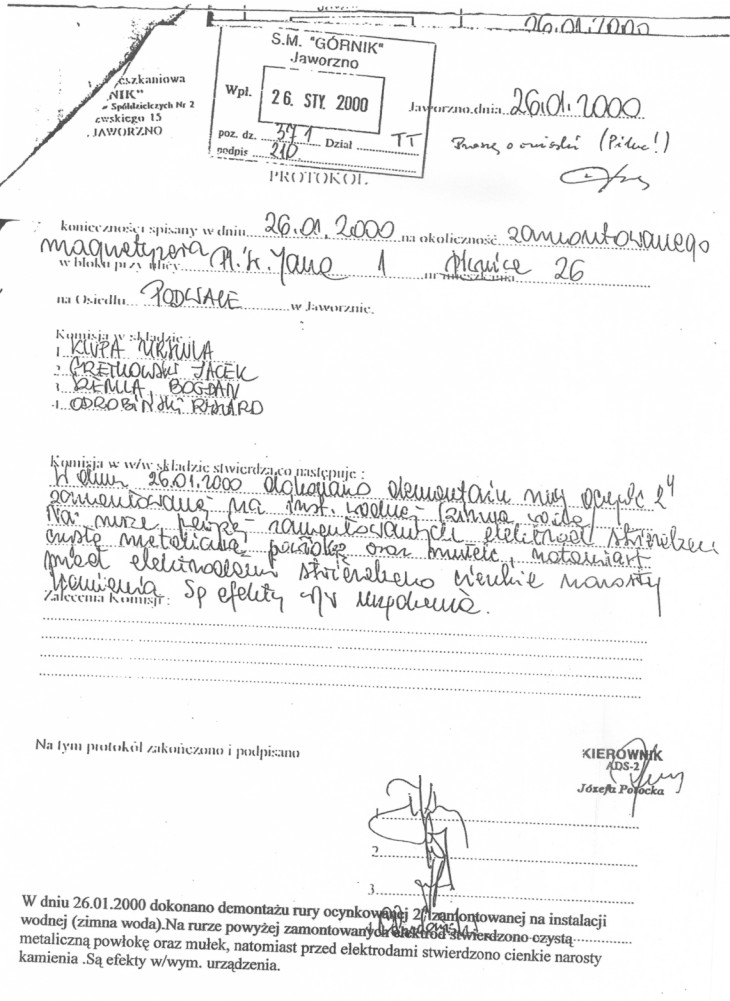 26.01.2000
S.M. "GÓRNIK"
Jaworzno
Wpł.
26. STY. 2000
poz. dz. 371 Dział TT
podpis 210
eszkaniowa
NIK"
Spółdzielczych Nr 2
ewskiego 15
JAWORZNO
Jaworzno,dnia 26.01.2000
Proszę o (Pilne!)
PROTOKÓŁ
konieczności spisany w dniu 26.01.2000 na okoliczność zamontowanego
magnetyzera
w bloku przy ulicy Jana 1 nr mieszkania Piwnice 26
na Osiedlu PODWALE w Jaworznie.
Komisja w składzie :
1. KLUPA URSZULA
2. JACEK
3. BOGDAN
4. ODROBIŃSKI RYSZARD
Komisja w w/w składzie stwierdza,co następuje :
W dniu 26.01.2000 dokonano demontażu rury ocynk 2"
zamontowanej na inst. wodnej (zimna woda)
Na rurze powyżej zamontowanych elektrod stwierdzono
czystą metaliczną powłokę oraz mułek, natomiast
przed elektrodami stwierdzono cienkie narosty
kamienia. Są efekty w/w urządzenia.
Zalecenia Komisji :
Na tym protokół zakończono i podpisano
KIEROWNIK
ADS-2
Józefa Potocka
1.
2.
3.
W dniu 26.01.2000 dokonano demontażu rury ocynkowanej 2" zamontowanej na instalacji
wodnej (zimna woda).Na rurze powyżej zamontowanych elektrod stwierdzono czystą
metaliczną powłokę oraz mułek, natomiast przed elektrodami stwierdzono cienkie narosty
kamienia .Są efekty w/wym. urządzenia.